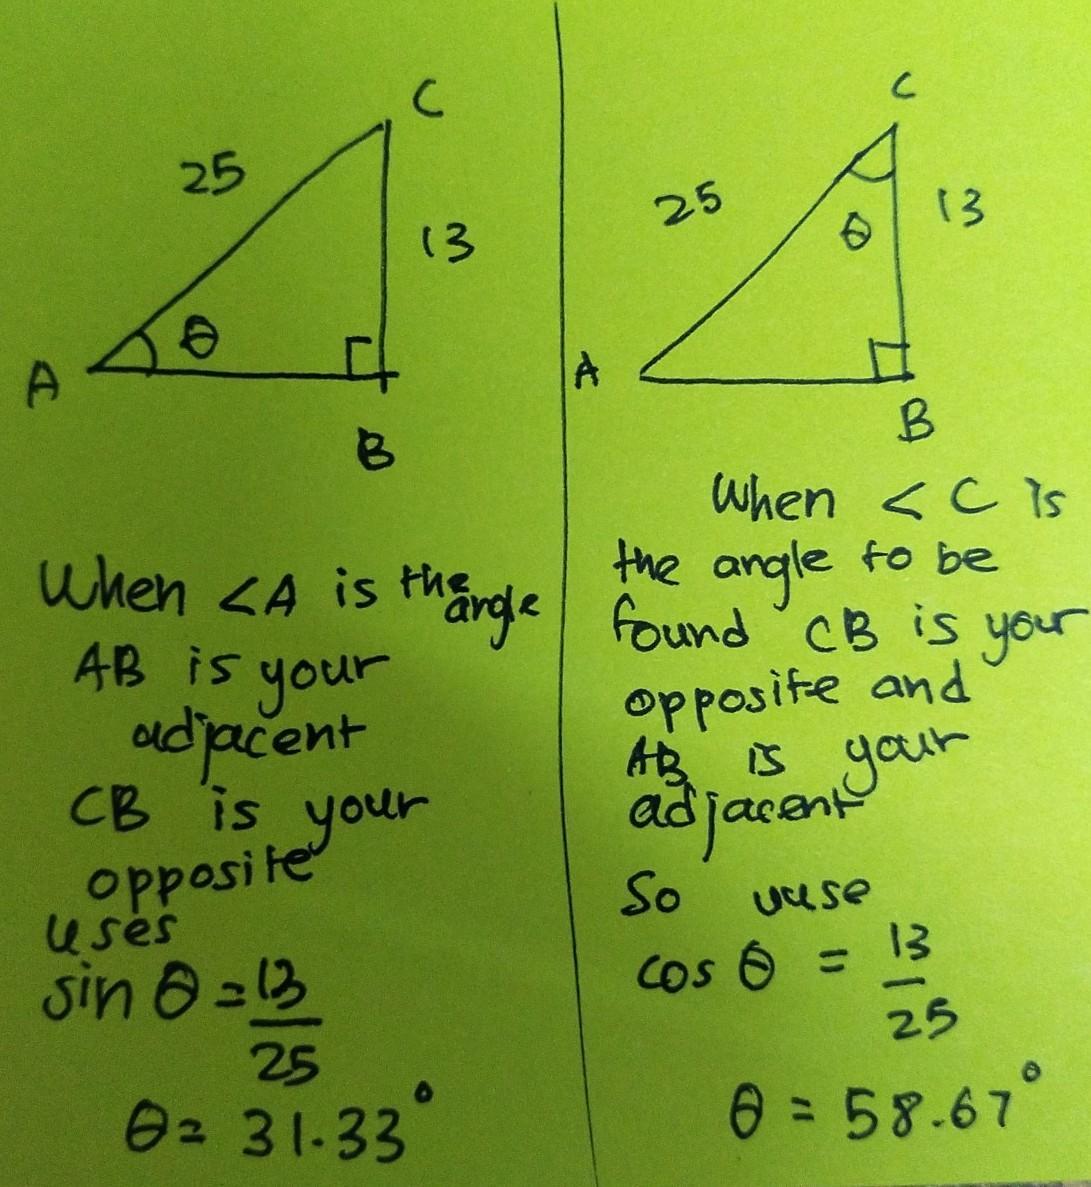 C
25
13
θ
A
B
When <A is the angle
AB is your
adjacent
CB is your
opposite
uses
sin θ = 13/25
θ = 31.33°
C
25
13
θ
A
B
When < C is
the angle to be
found CB is your
opposite and
AB is your
adjacent
So uuse
cos θ = 13/25
θ = 58.67°